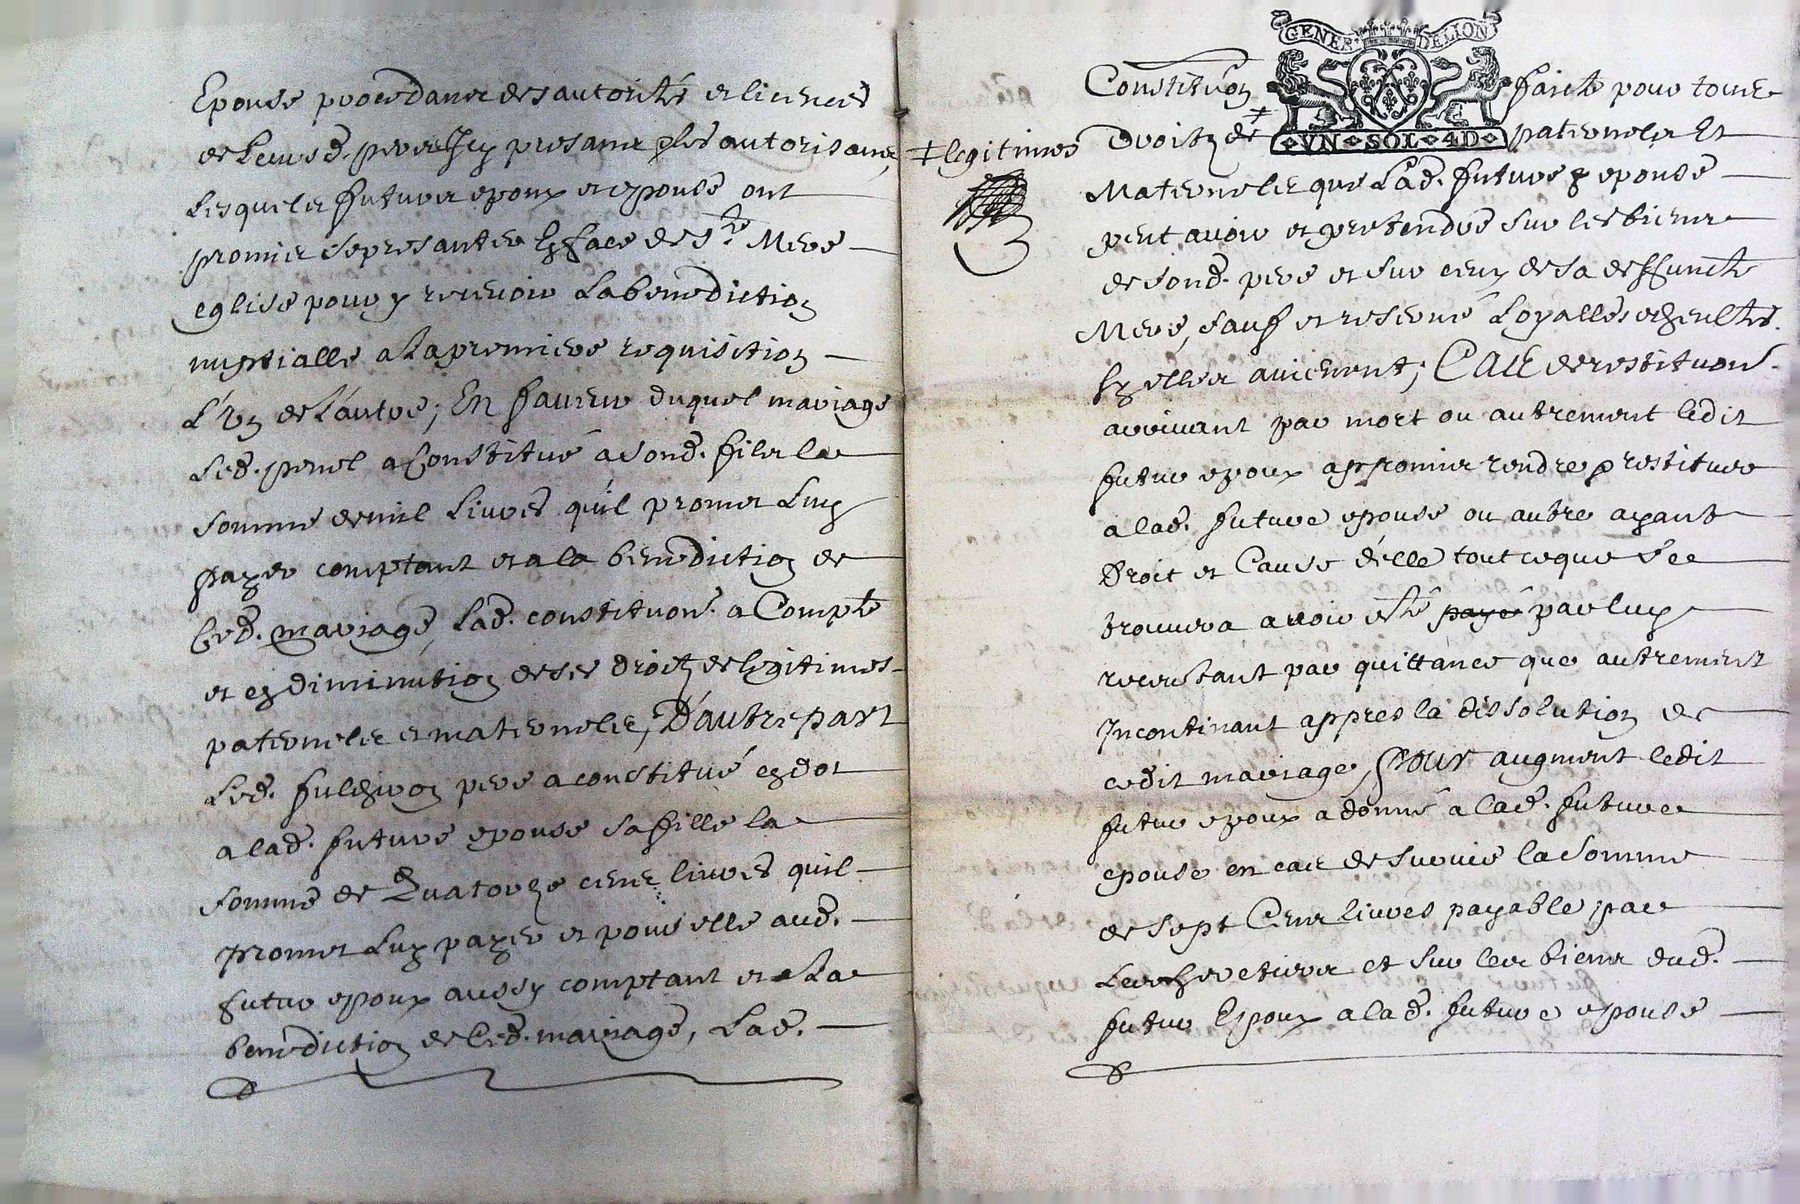 Epouse proceddans des autorités et licences
de leursd. peres Icy presans et les autorisans,
Lesquels futurs epoux et epouse ont
promis se presanter En face de Ste. Mere
eglise pour y recevoir La benediction
nuptialle a La premiere requisition
L'Un de L'autre; En faveur duquel mariage
Led. penel a Constitué a sond. fils la
somme de mil Livres qu'il promet Luy
payer comptant et a la benediction de
Ced. mariage, Lad. constituon. a Compte
et en diminution de ses droits de legitimes
paternels et maternels, D'autre part
Led. fulchiron pere a constitué en dot
a lad. future epouse sa fille la
somme de Quatorze cens livres quil
promet Luy payer et pour elle aud.
futur epoux aussy comptant et a La
benediction de Ced. mariage, Lad.
GENER DELION
VN SOL 4D
Constituon faicte pour tous
‡ legitimes
Droits de ‡ paternels Et
Maternels que Lad. future epouse
peut avoir et pretendre sur les biens
de sond. pere et sur ceux de sa deffuncte
Mere, sauf et reservé Loyalles echeultes.
Sy elles avienent; CAS de restituon.
arrivant par mort ou autrement ledit
futur epoux a promis rendre et restituer
a lad. future epouse ou autre ayant
Droit et Cause d'elle tout ce que se
trouvera avoir esté payé par luy
recu tant par quittance que autrement
Incontinant appres la dissolution de
cedit mariage, POUR augment ledit
futur epoux a donné a lad. future
epouse en cas de survie la somme
de sept Cens livres payable par
Les heretiers et sur les biens dud.
futur Epoux a lad. future epouse